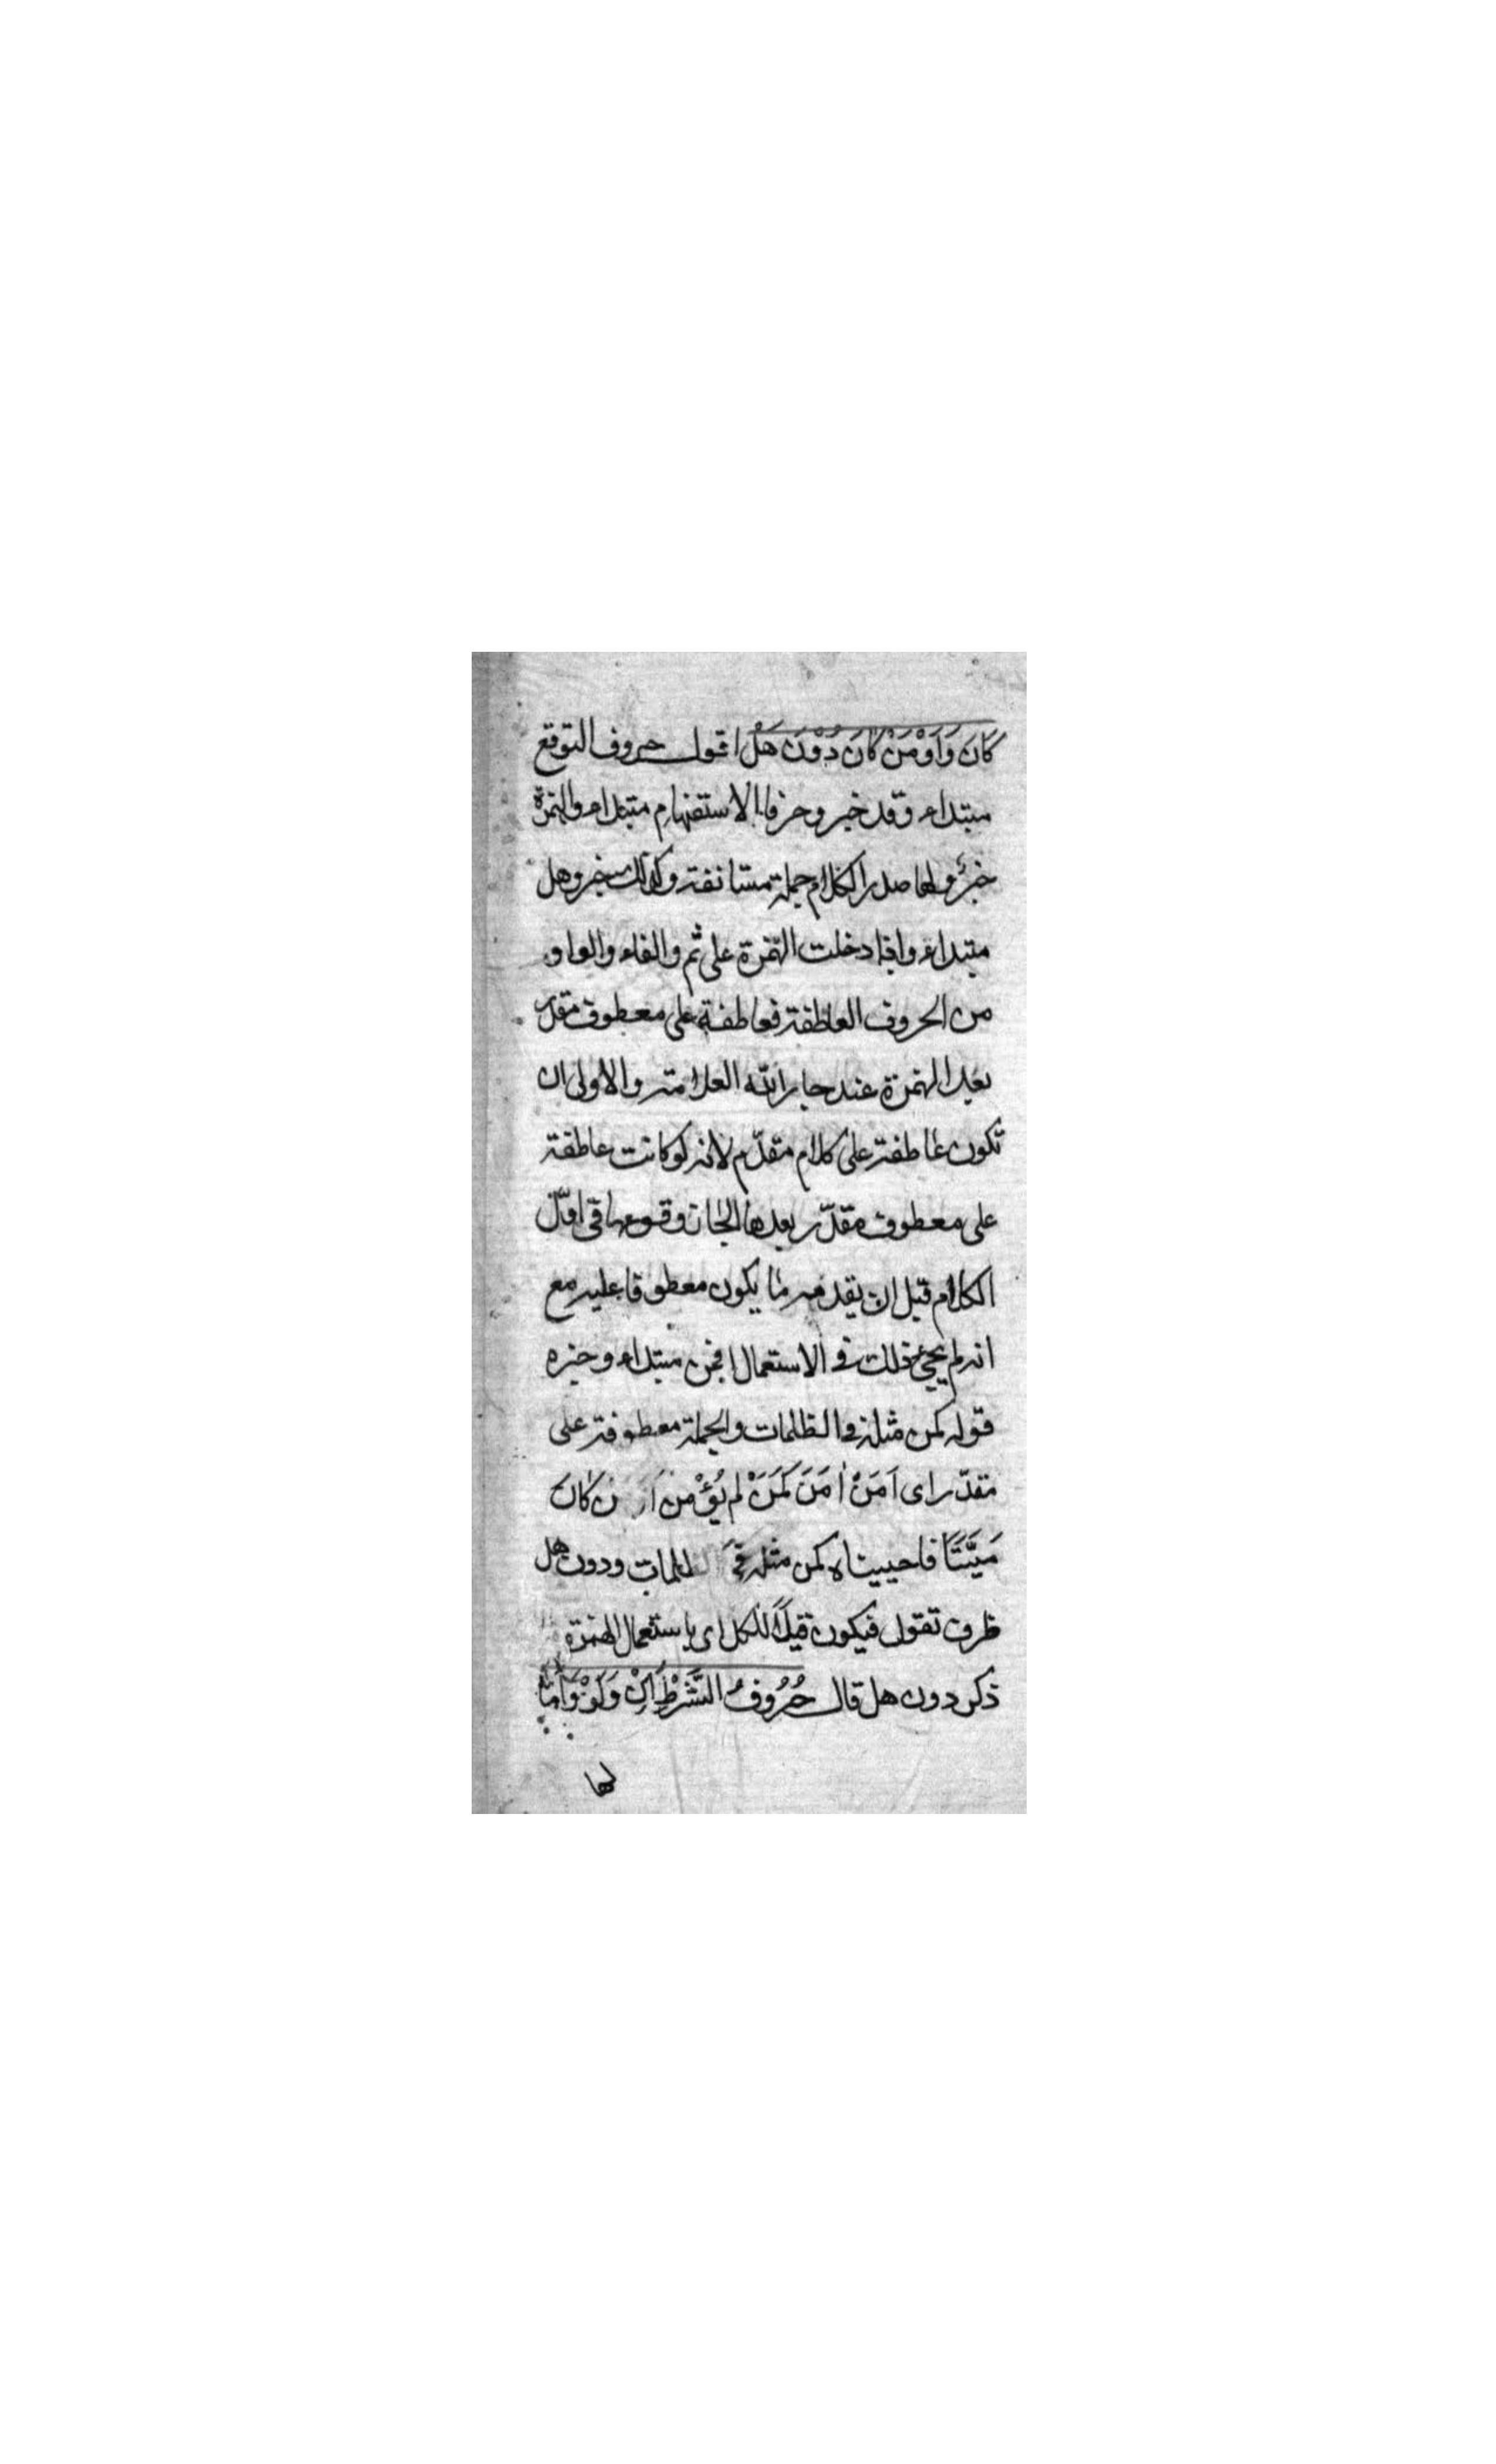 كَانَ وَاَوَمَنْ كَانَ دُوْنَ هَلْ اقول حروف التوقع
مبتداء وقد خبر وحرفا الاستفهام مبتداء والهمزة
خبرٌ ولها صدر الكلام جملة مستانفة وكذلك خبر وهل
مبتداء واذا دخلت الهمزة على ثم والفاء والواو
من الحروف العاطفة فعاطفة على معطوف مقدر
بعد الهمزة عند جار الله العلامة والاولى ان
تكون عاطفة على كلام مقدّم لانه لو كانت عاطفة
على معطوف مقدّر بعدها لجاز وقوعها في اوّل
الكلام قبل ان يقدمه ما يكون معطوفا عليه مع
انه لم يجئ ذلك في الاستعمال افمن مبتداء وخبره
قوله كمن مثله في الظلمات والجملة معطوفة على
مقدّر اى اَمَنْ اٰمَنَ كَمَنْ لم يُؤْمِن ن كان
مَيِّتًا فاحييناه كمن مثله في الظلمات ودون هل
ظرف تقول فيكون قيدًا للكل اى باستعمال الهمزة
ذكر دون هل قال حُرُوفُ الشَّرْطِ اِنْ وَلَوْ وَاَمَّا
لها